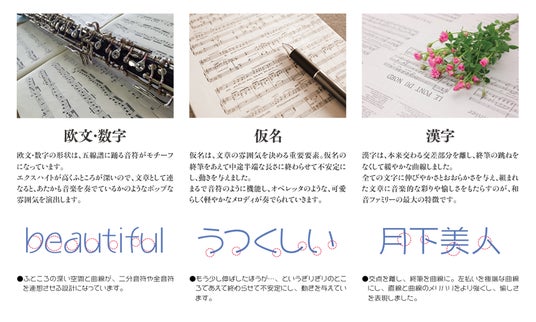 LE TONT DU NORD
欧文・数字
欧文・数字の形状は、五線譜に踊る音符がモチーフ
になっています。
エクスハイトが高くふところが深いので、文章として連
なると、あたかも音楽を奏でているかのようなポップな
雰囲気を演出します。
beautiful
●ふところの深い空間と曲線が、二分音符や全音符
を連想させる設計になっています。
仮名
仮名は、文章の雰囲気を決める重要要素。仮名の
終筆をあえて中途半端な長さに終わらせて不安定に
し、動きを与えました。
まるで音符のように機能し、オペレッタのような、可愛
らしく軽やかなメロディが奏でられていきます。
うつくしい
●もう少し伸ばしたほうが…、というぎりぎりのとこ
ろであえて終わらせて不安定にし、動きを与えてい
ます。
漢字
漢字は、本来交わる交差部分を離し、終筆の跳ねを
なくして緩やかな曲線しました。
全ての文字に伸びやかさとおおらかさを与え、組まれ
た文章に音楽的な彩りや愉しさをもたらすのが、和
音ファミリーの最大の特徴です。
月下美人
●交点を離し、終筆を曲線に。左払いを極端な曲線
にし、直線と曲線のメリハリをより強くし、愉しさ
を表現しました。